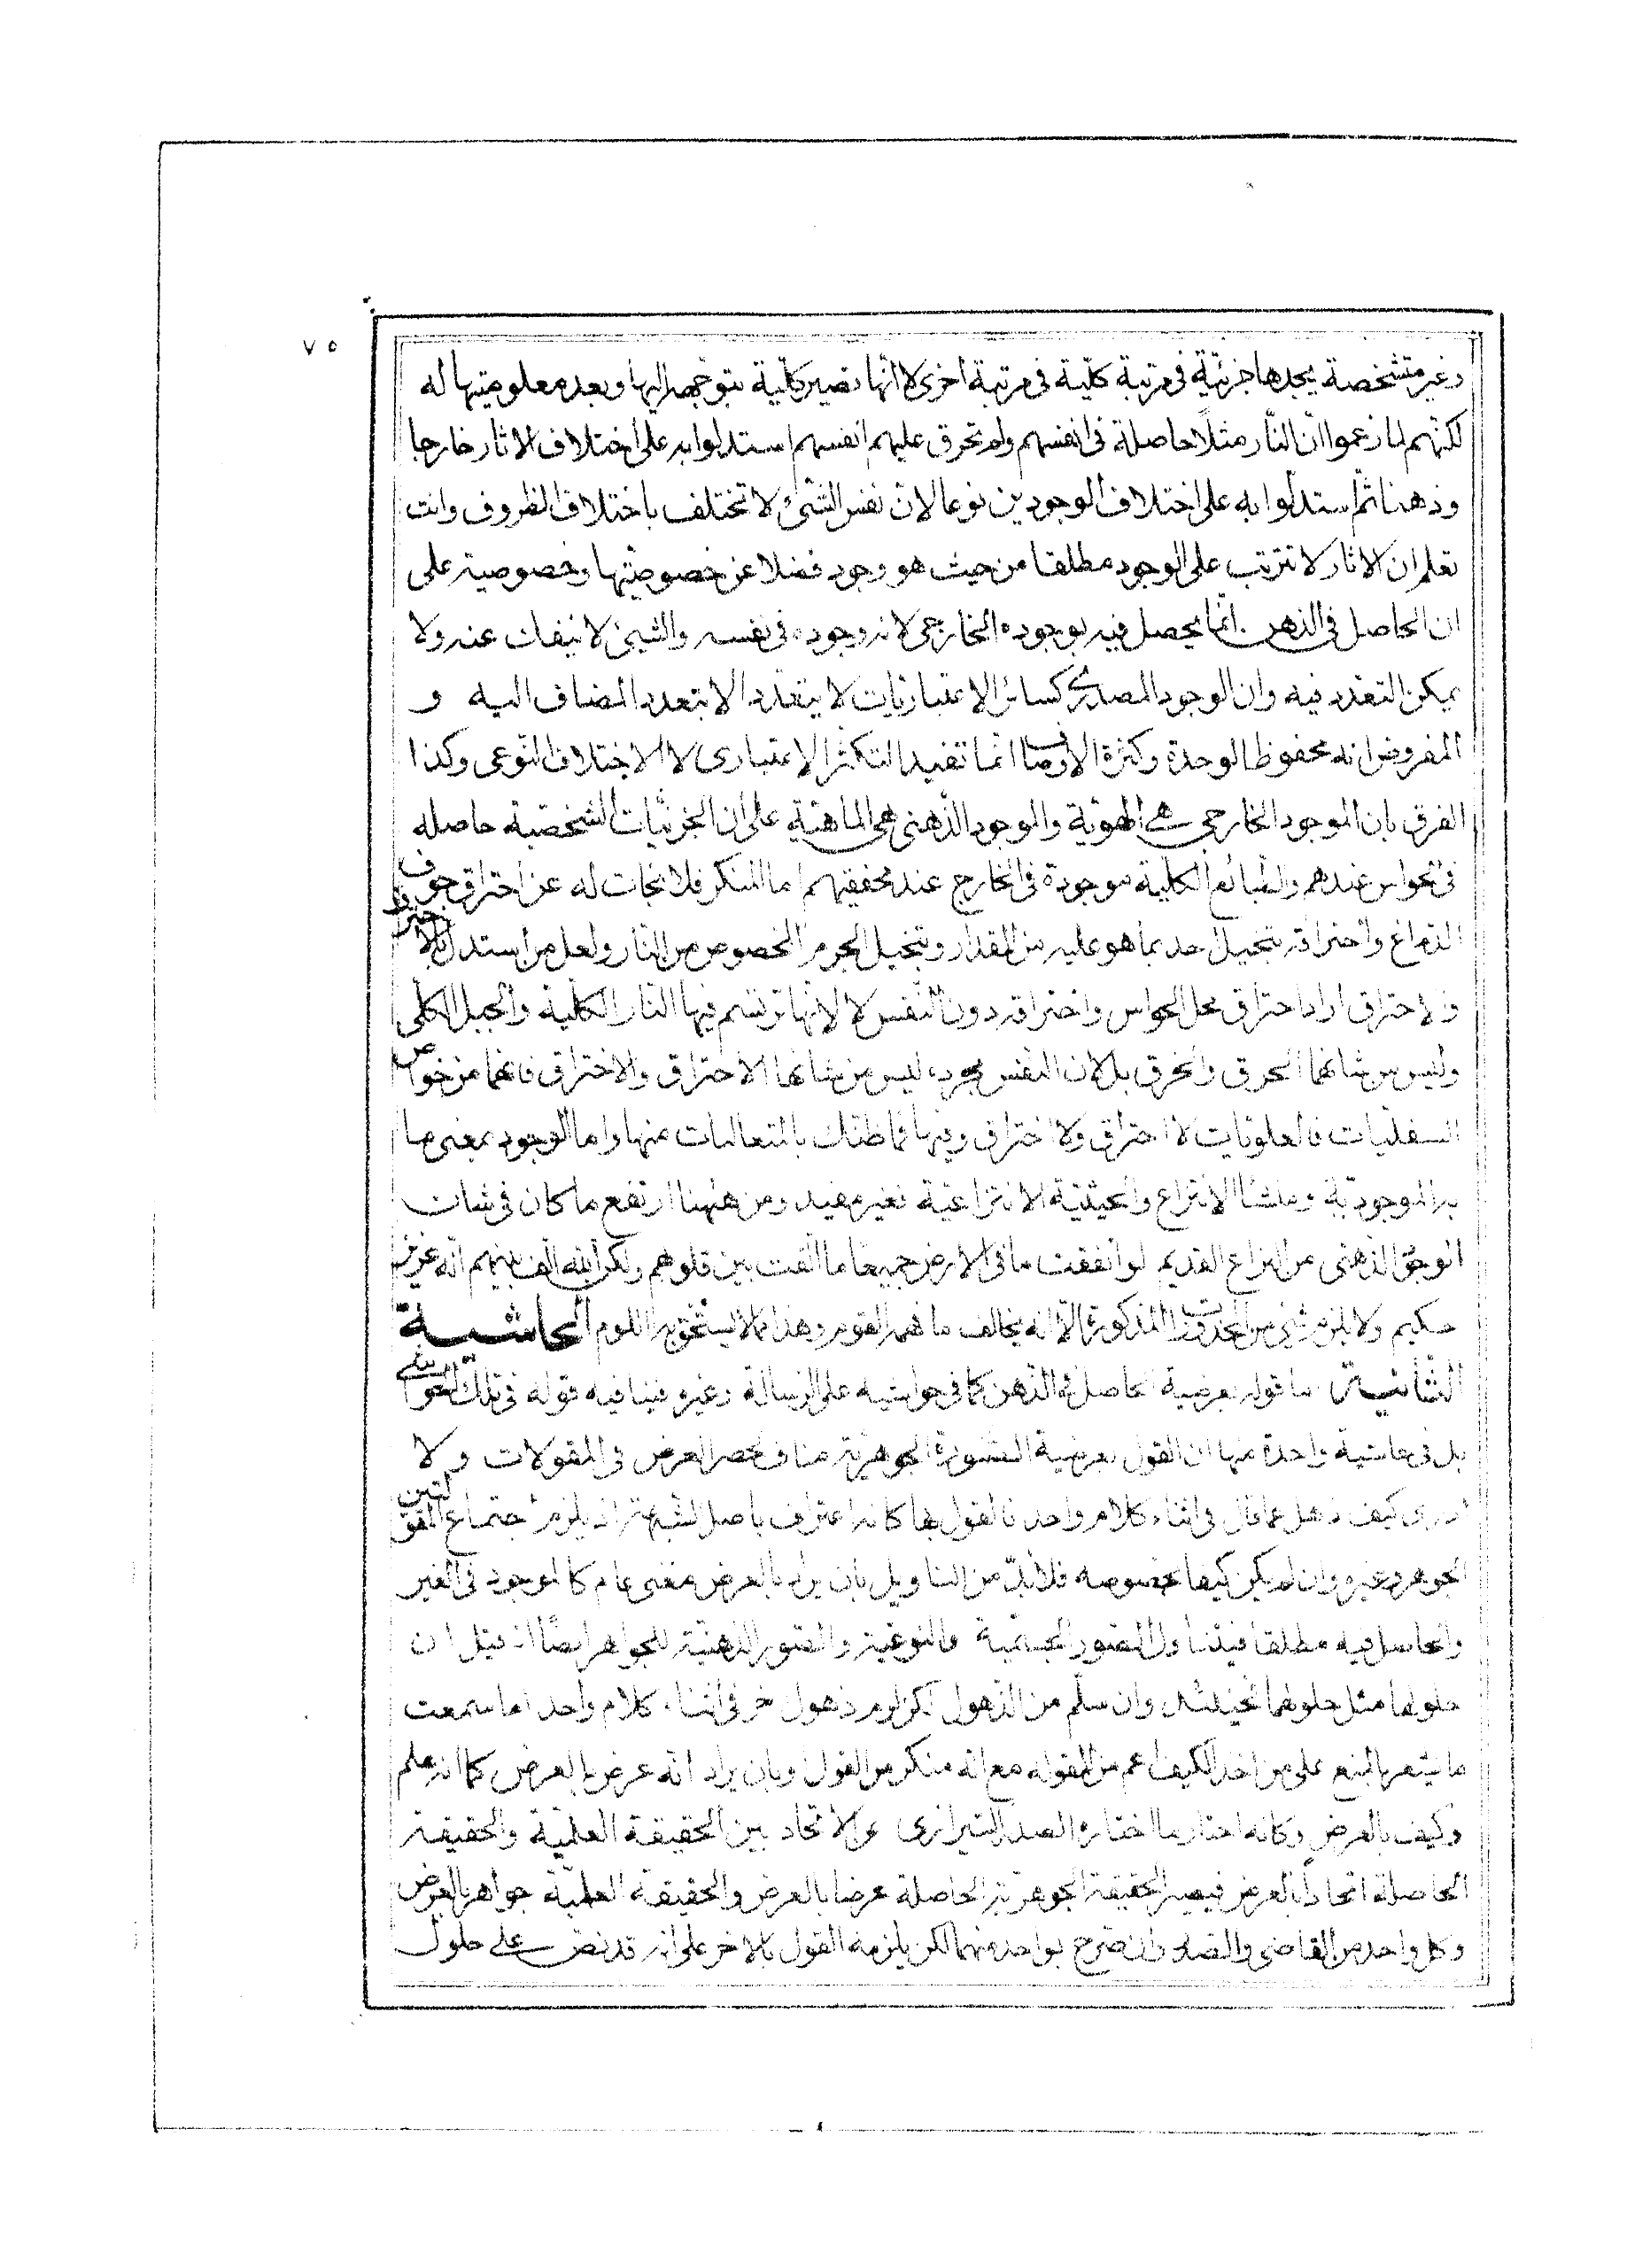 ٧٥
وغير متشخصة يجدها جزئيّة في مرتبة كلّية في مرتبة اخرى لا انّها تصير كلّية بتوجّهه اليها وبعد معلوميتها له
لكنّهم لما زعموا ان النّار مثلًا حاصلة في انفسهم ولم تحرق عليهم انفسهم استدلوا به على اختلاف الاثار خارجا
وذهنا ثم استدلوا به على اختلاف الوجودين نوعا لان نفس الشئ لا تختلف باختلاف الظروف وانت
تعلم ان الاثار لا تترتب على الوجود مطلقا من حيث هو وجود فضلا عن خصوصيتها وخصوصيته على
ان الحاصل في الذهن انّما يحصل فيه بوجوده الخارجي لانه وجوده في نفسه والشيئ لا ينفك عنه ولا
يمكن التعدد فيه وان الوجود المصدري كسائر الاعتباريات لا يتعدد الا بتعدد المضاف اليه و
المفروض انه محفوظ الوحدة وكثرة الاوصاف انما تفيد التكثّر الاعتبارى لا الاختلاف النوعى وكذا
الفرق بان الموجود الخارجي هي الهويّة والموجود الذهني هي الماهيّة على ان الجزئيّات الشخصيّة حاصله
في الحواس عندهم والطبائع الكلية موجودة في الخارج عند محققيهم اما المنكر فلا نجات له عن احتراق جوف
الدماغ واختراقه بتخيل احد بما هو عليه من المقدار وتخيل الجرم المخصوص من النار ولعل من استدل بالاحتراق
والاختراق اراد احتراق محل الحواس واختراقه دون النفس لا لانها ترتسم فيها النار الكلية والجبل الكلّي
وليس من شانهما الحرق والخرق بل لان النفس مجرده ليس من شانها الاحتراق والاختراق فانهما من خواص
السفليّات فالعلويّات لا احتراق ولا اختراق فيها فما ظنك بالمتعاليات منها واما الوجود بمعنى ما
به الموجودية ومنشأ الانتزاع والحيثيّة الانتزاعيّة فغير مفيد ومن ههنا ارتفع ما كان في شان
الوجود الذهني من النزاع القديم لو انفقت ما في الارض جميعًا ما الفت بين قلوبهم ولكن الله الّف بينهم انه عزيز
حكيم ولا يلزم شئ من المذكورة الّا انه يخالف ما فهمه القوم وهذا مما لا يستحق به اللوم الحاشية
الثّانية ما قوله بعرضية الحاصل في الذهن كما في حواشيه على الرسالة وغيره فينافيه قوله في تلك الحواشي
بل في حاشية واحدة منها ان القول بعرضية الصورة الجوهرية مناف لحصر العرض في المقولات ولا
ادرى كيف ذهل عما قال في اثناء كلام واحد فالقول بها كانه اعتراف باصل الشبهة اذ يلزم اجتماع المقولتين
الجوهر وغيره وان لم يكن كيفا بخصوصه فلابدّ من التاويل بان يراد بالعرض معنى عام كالموجود في الغير
والحاصل فيه مطلقا فيتناول الصور الجسمية والنوعية والصور الذهنية للجواهر ايضًا اذ قيل ان
حلولها مثل حلولهما فحينئذ وان سلّم من الذهول لكن لزم ذهول اخر في اثناء كلام واحد اما سمعت
ما يشعر بالمنع على من اخذ الكيف اعم من المقوله مع انه منكر من القول وبان يراد انّه عرض بالعرض كما انه علم
وكيف بالعرض وكانه اختار ما اختاره الصدر الشيرازى من الاتحاد بين الحقيقة العلميّة والحقيقة
الحاصلة اتحادًا بالعرض فيصير الحقيقة الجوهرية الحاصلة عرضا بالعرض والحقيقة العلميّة جواهر بالعرض
وكل واحد من القاضى والصدر وان صرّح بواحد منهما لكن يلزمه القول بالاخر على انه قد نص على حلول